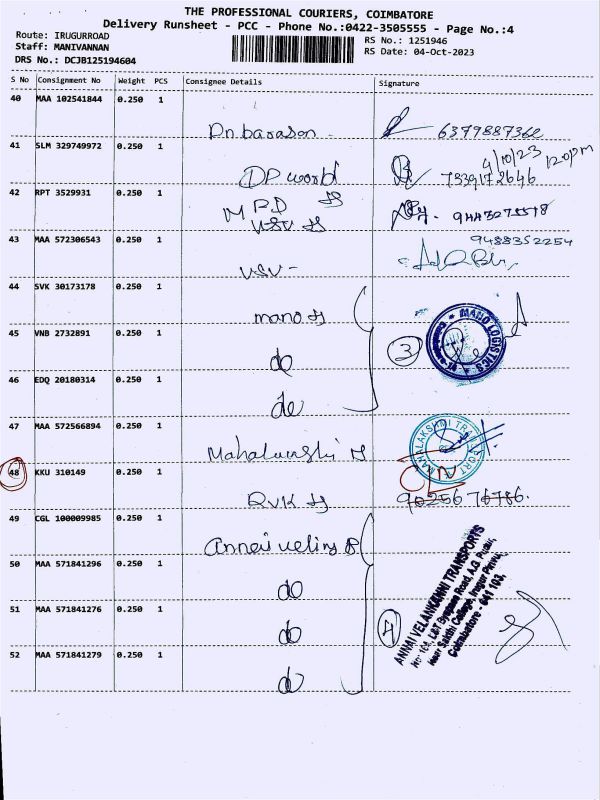 THE PROFESSIONAL COURIERS, COIMBATORE
Delivery Runsheet - PCC - Phone No.:0422-3505555 - Page No.:4
Route: IRUGURROAD
Staff: MANIVANNAN
DRS No.: DCJB125194604
RS No.: 1251946
RS Date: 04-Oct-2023
S No Consignment No Weight PCS Consignee Details Signature
40 MAA 102541844 0.250 1 6379887362
41 SLM 329749972 0.250 1 DP world 4/10/23 120pm
7339172646
42 RPT 3529931 0.250 1 MPD
43 MAA 572306543 0.250 1 9488352254
44 SVK 30173178 0.250 1 mano
45 VNB 2732891 0.250 1 do 3 MANO LOGISTICS
46 EDQ 20180314 0.250 1 do
47 MAA 572566894 0.250 1 MAHALAKSHMI TRANSPORT
48 KKU 310149 0.250 1 RVK 9025676786.
49 CGL 100009985 0.250 1 Annai
50 MAA 571841296 0.250 1 do
51 MAA 571841276 0.250 1 do 4
52 MAA 571841279 0.250 1 do
ANNAI VELANKANNI TRANSPORTS
L&T Bypass Road, A.G. Pudur,
Coimbatore - 641 103.